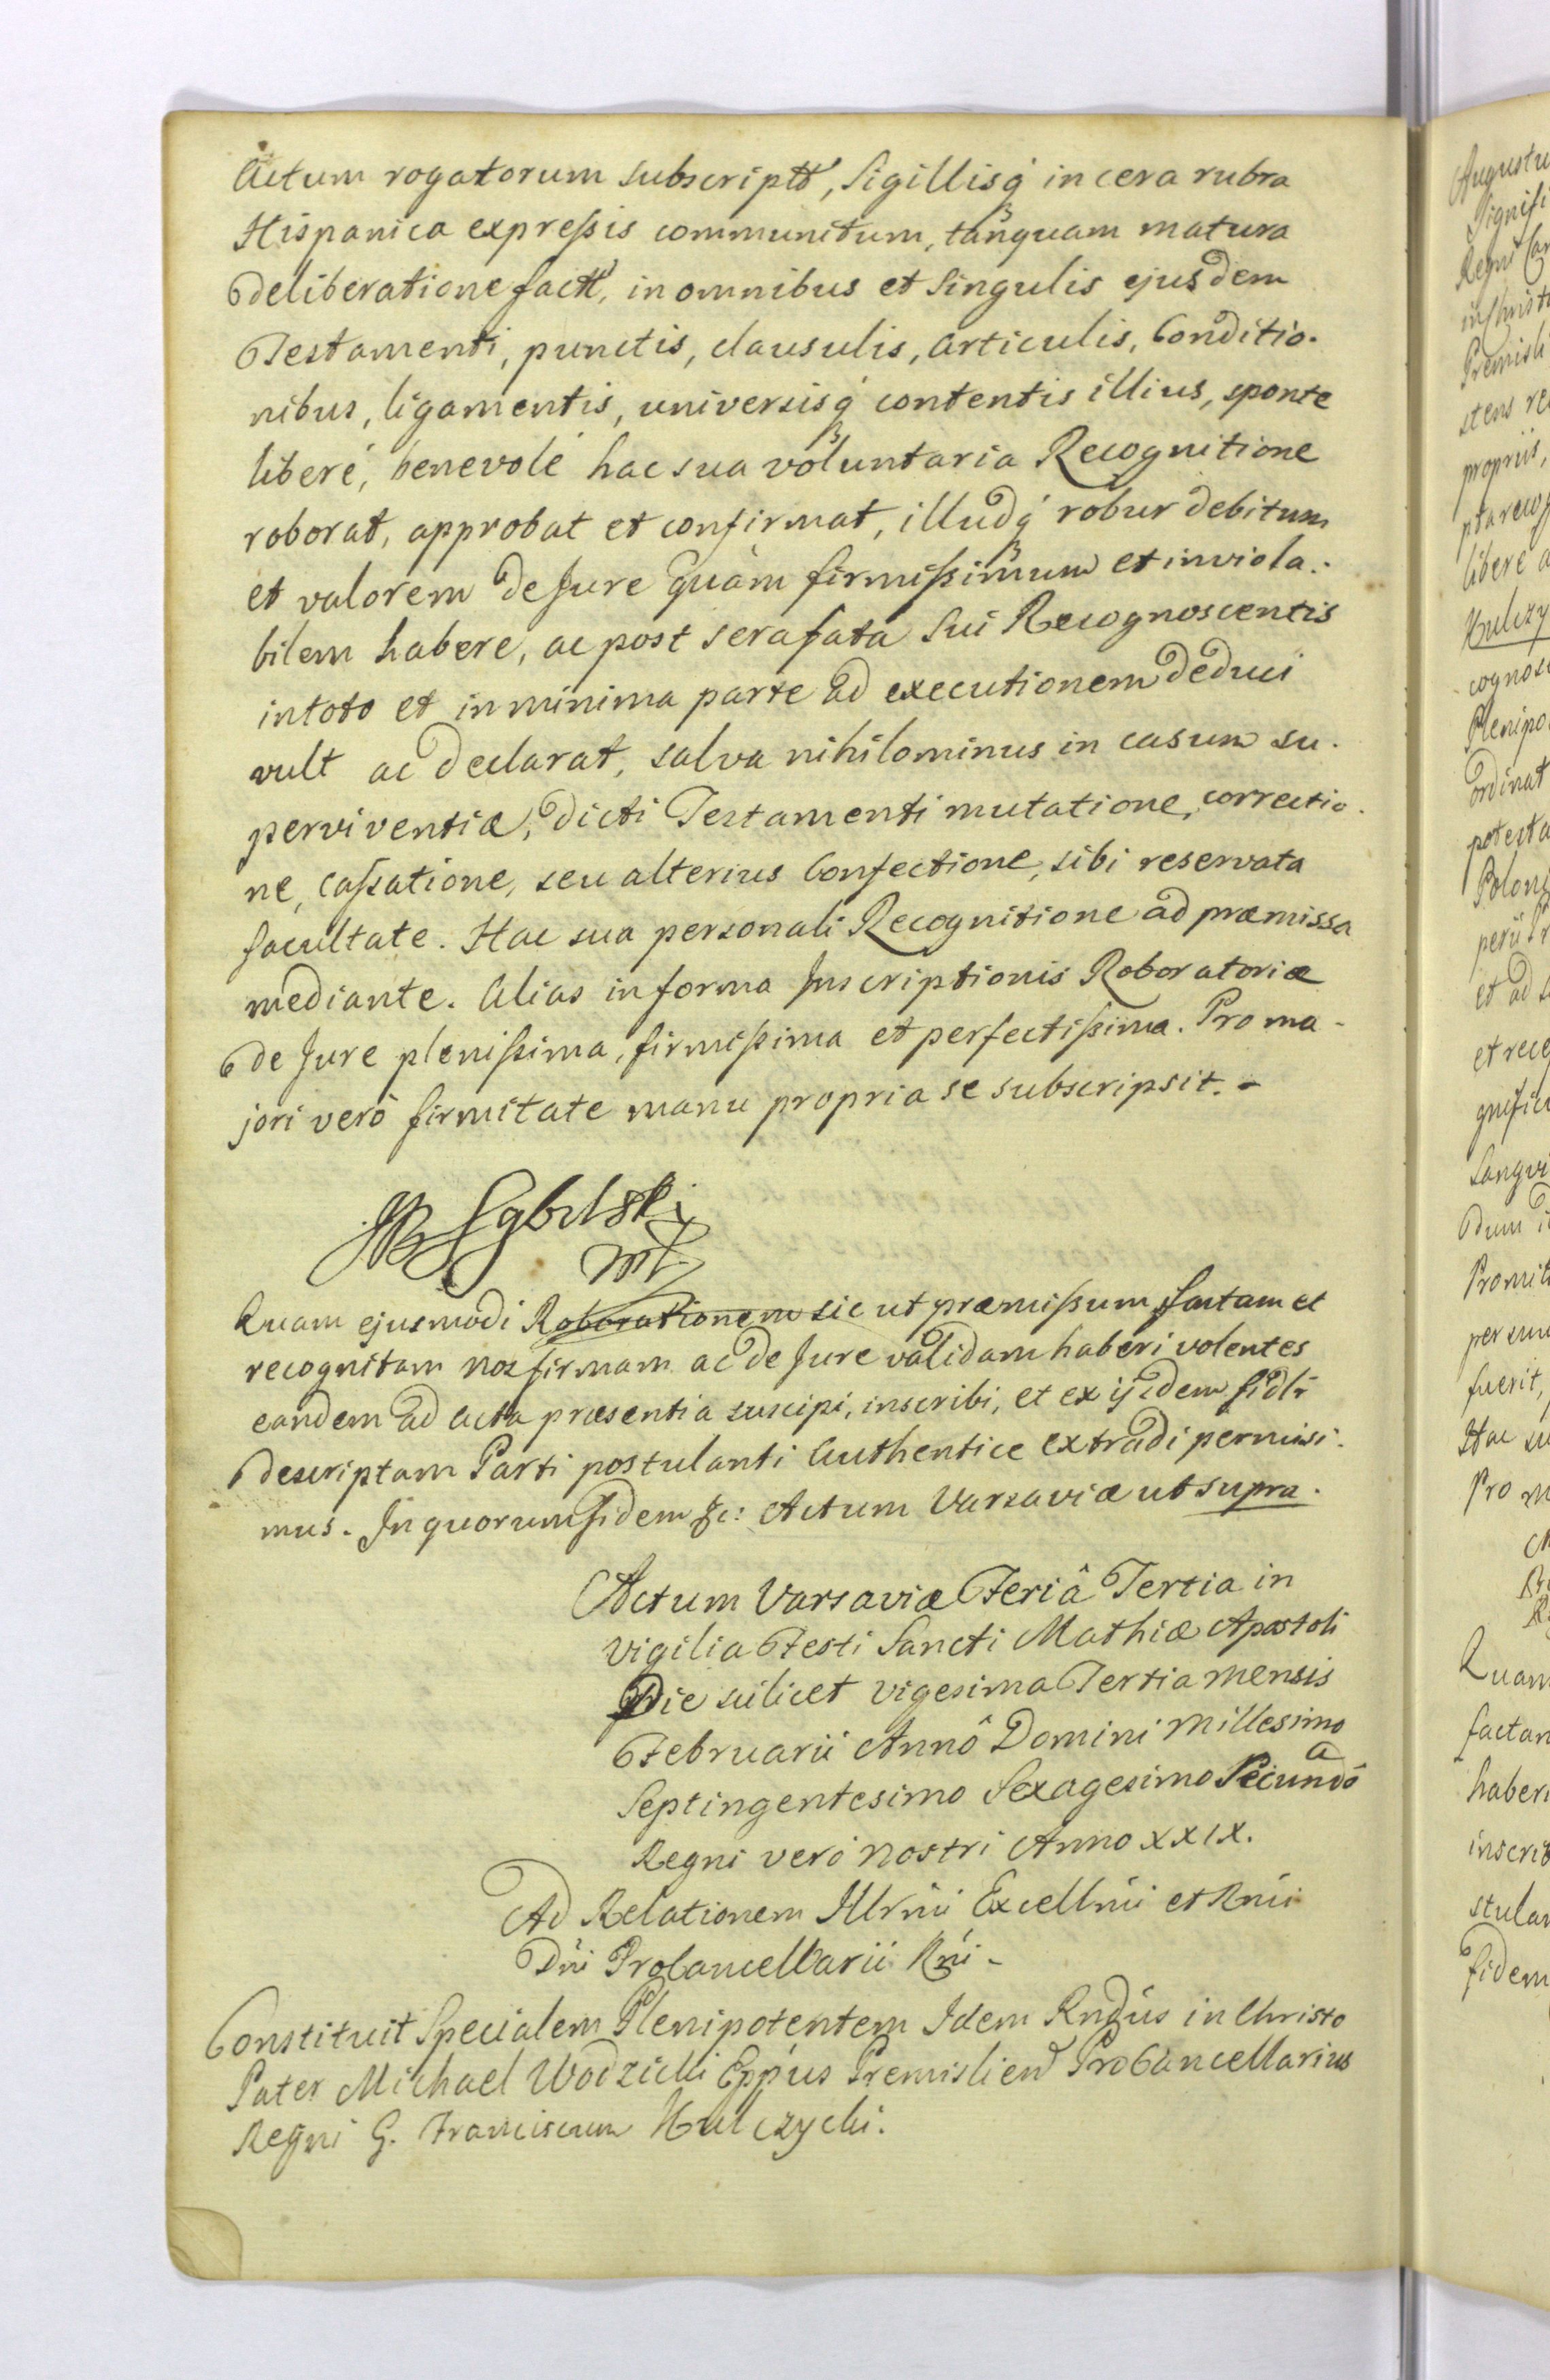 Actum rogatorum subscriptt, Sigillisq́ in cera rubra
Hispanica expreſsis communitum, tanquam matura
deliberatione factt, in omnibus et Singulis ejusdem
Testamenti, punctis, clausulis, articulis, Conditio-
nibus, ligamentis, universisq́ contentis illius, sponte
liberé, benevolé hac sua voluntaria Recognitione
roborat, approbat et confirmat, illudq́ robur debitum
et valorem de Jure quàm firmiſsimum et inviola-
bilem habere, ac post sera fata sui Recognoscentis
in toto et in minima parte ad executionem deduci
vult ac declarat, salva nihilominus in casum su-
perviventiæ, dicti Testamenti mutatione, correctio-
ne, caſsatione, seu alterius Confectione, sibi reservata
facultate. Hac sua personali Recognitione ad præmissa
mediante. Alias in forma Inscriptionis Roboratoriæ
de Jure pleniſsima, firmiſsima et perfectiſsima. Pro ma-
jori verò firmitate manu propria se subscripsit. -
Quam ejusmodi Roborationem sic ut præmiſsum factam et
recognitam nos firmam ac de Jure validam haberi volentes
eandem ad acta præsentia suscipi, inscribi, et ex ijsdem fidlr
descriptam Parti postulanti Authentice extradi permisi-
mus. In quorum fidem &c: Actum Varsaviæ ut supra.
Actum Varsaviæ Feriâ Tertia in
Vigilia Festi Sancti Mathiæ Apostoli
Die scilicet vigesima Tertia Mensis
Februarii Annô Domini Millesimo
Septingentesimo Sexagesimo Secundô
Regni veró Nostri Anno XXIX.
Ad Relationem Illrm̃i Excellm̃i et Rm̃i
Dñi Procancellarii Rñi -
Constituit Specialem Plenipotentem Idem Rndus in Christo
Pater Michael Wodzicki Epp̃us Premislien̄ ProCancellarius
Regni G. Franciscum Hulczycki.